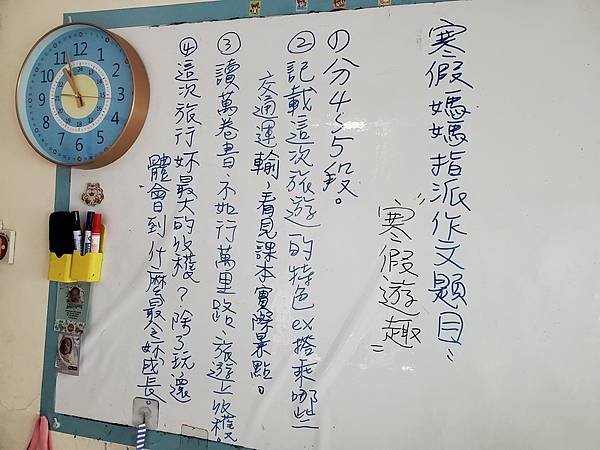 寒假媽媽指派作文題目:
"寒假遊趣"
①分4~5段。
②記載這次旅遊的特色ex搭乘哪些
交通運輸,看見課本實際景點。
③讀萬卷書、不如行萬里路、旅遊上收穫。
④這次旅行妳最大的收穫?除了玩還
體會到什麼最令妳成長。
12
1
2
3
4
5
6
7
8
9
10
11